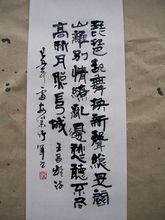 琵琶起舞換新聲總是關
山離別情繚亂邊愁聽不盡
高秋月照長城 王昌齡詩